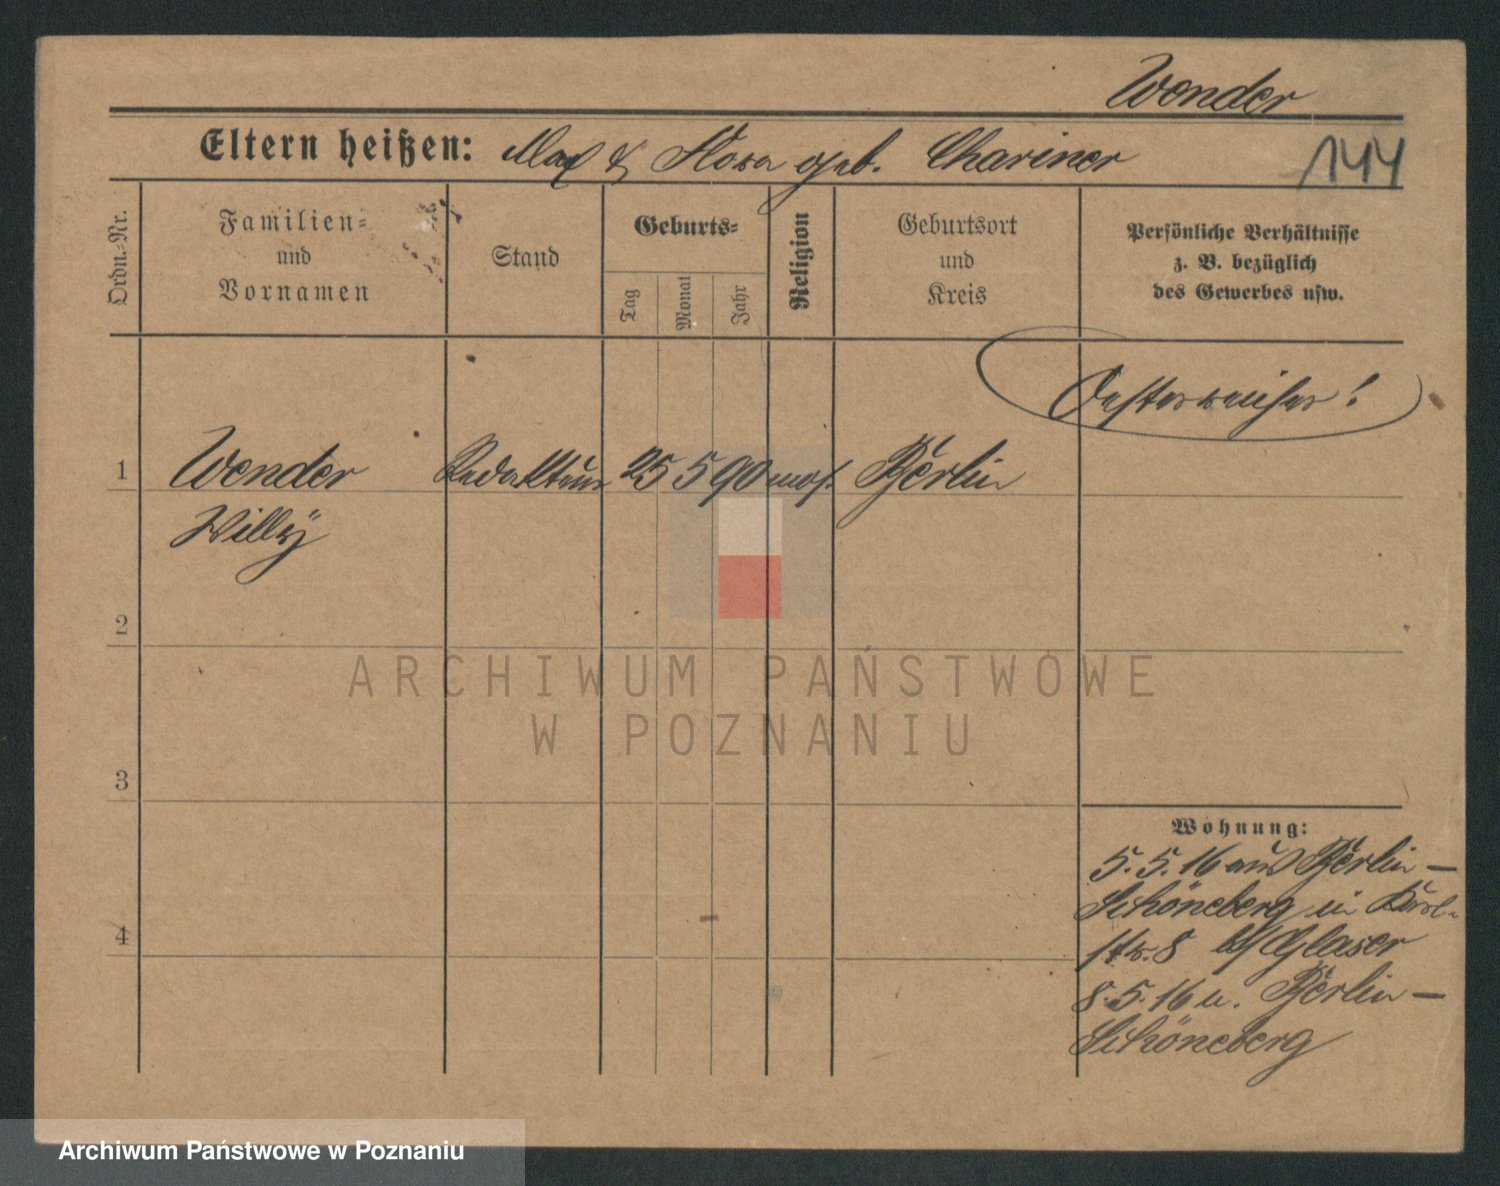 Wender
Eltern heißen: Max & Flora geb. Chariner
144
Ordn.-Nr.
Familien-
und
Vornamen
Stand
Geburts-
Tag
Monat
Jahr
Religion
Geburtsort
und
Kreis
Persönliche Verhältnisse
z. B. bezüglich
des Gewerbes usw.
Oesterreicher!
1 Wender Redakteur 25 5 90 mos. Berlin
Willÿ
2
ARCHIWUM PAŃSTWOWE
W POZNANIU
3
4
Wohnung:
5.5.16 aus Berlin-
Schöneberg in
str. 8 b/ Glaser
8.5.16 n. Berlin-
Schöneberg
Archiwum Państwowe w Poznaniu